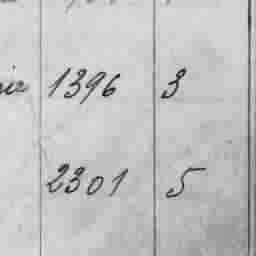 1396 3
2301 5